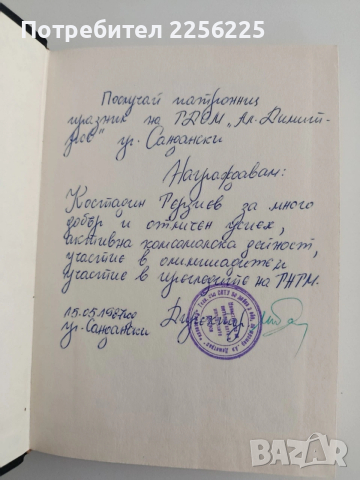 Потребител на Bazar.bg
По случай патронния
празник на ТДСМ „Ал. Димит-
ров" гр. Сандански
Награждавам:
Костадин Терзиев за много
добър и отличен успех,
активна комсомолска дейност,
участие в олимпиади и
участие в прегледите на ТНТМ.
15.05.1987 год
гр. Сандански
Директор:
bazar